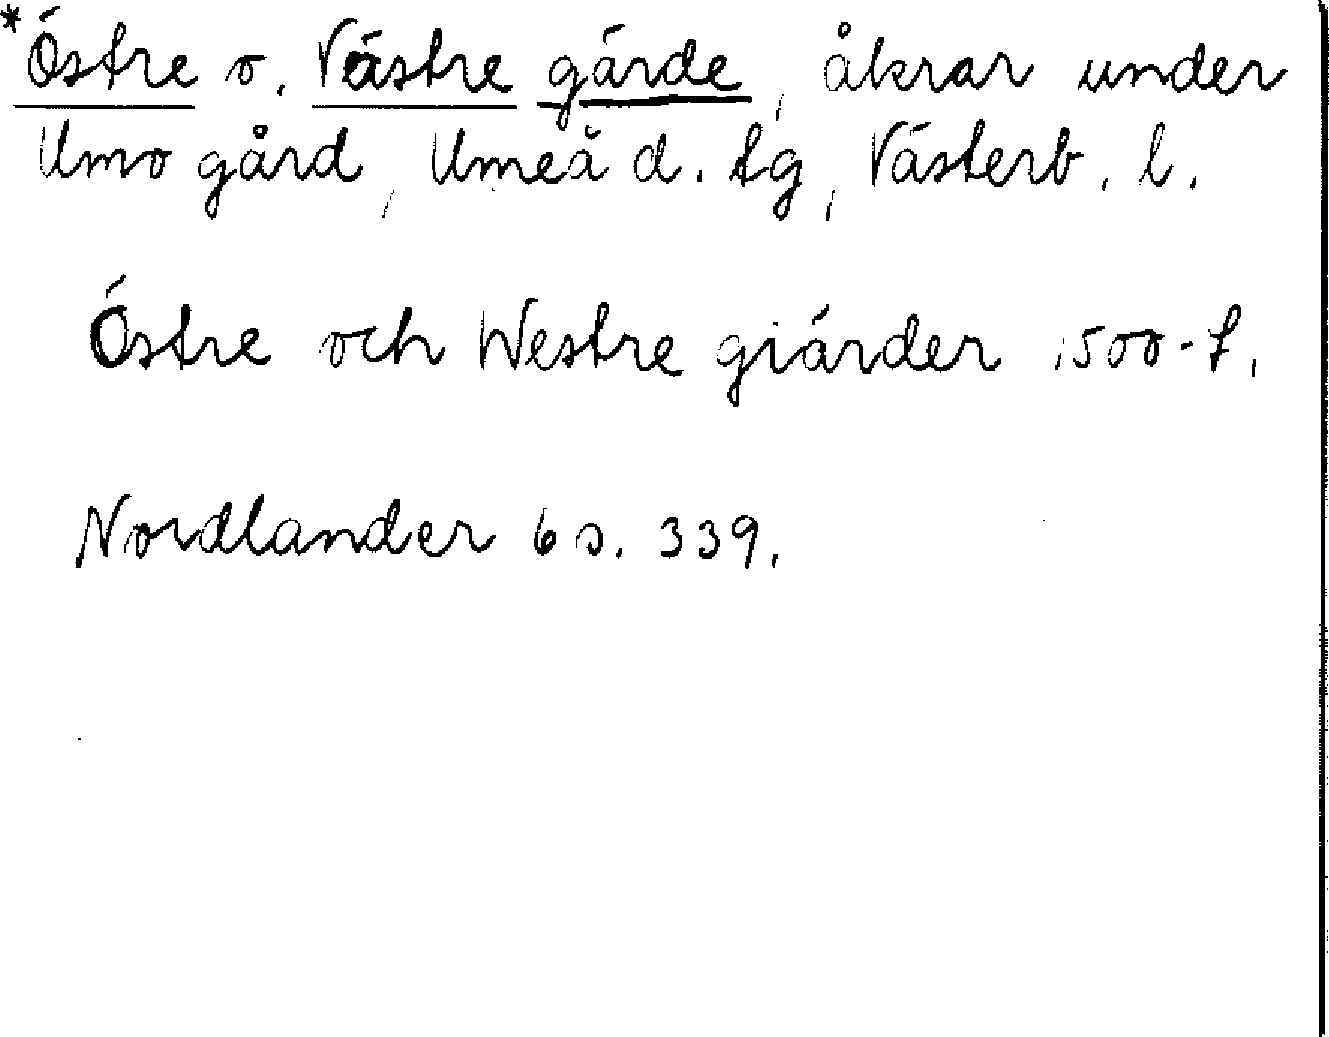 *Östre o. Västre gärde, åkrar under
Umo gård, Umeå d. tg, Västerb. l.
Östre och Westre giärder 1500-t.
Nordlander 6 s. 339.